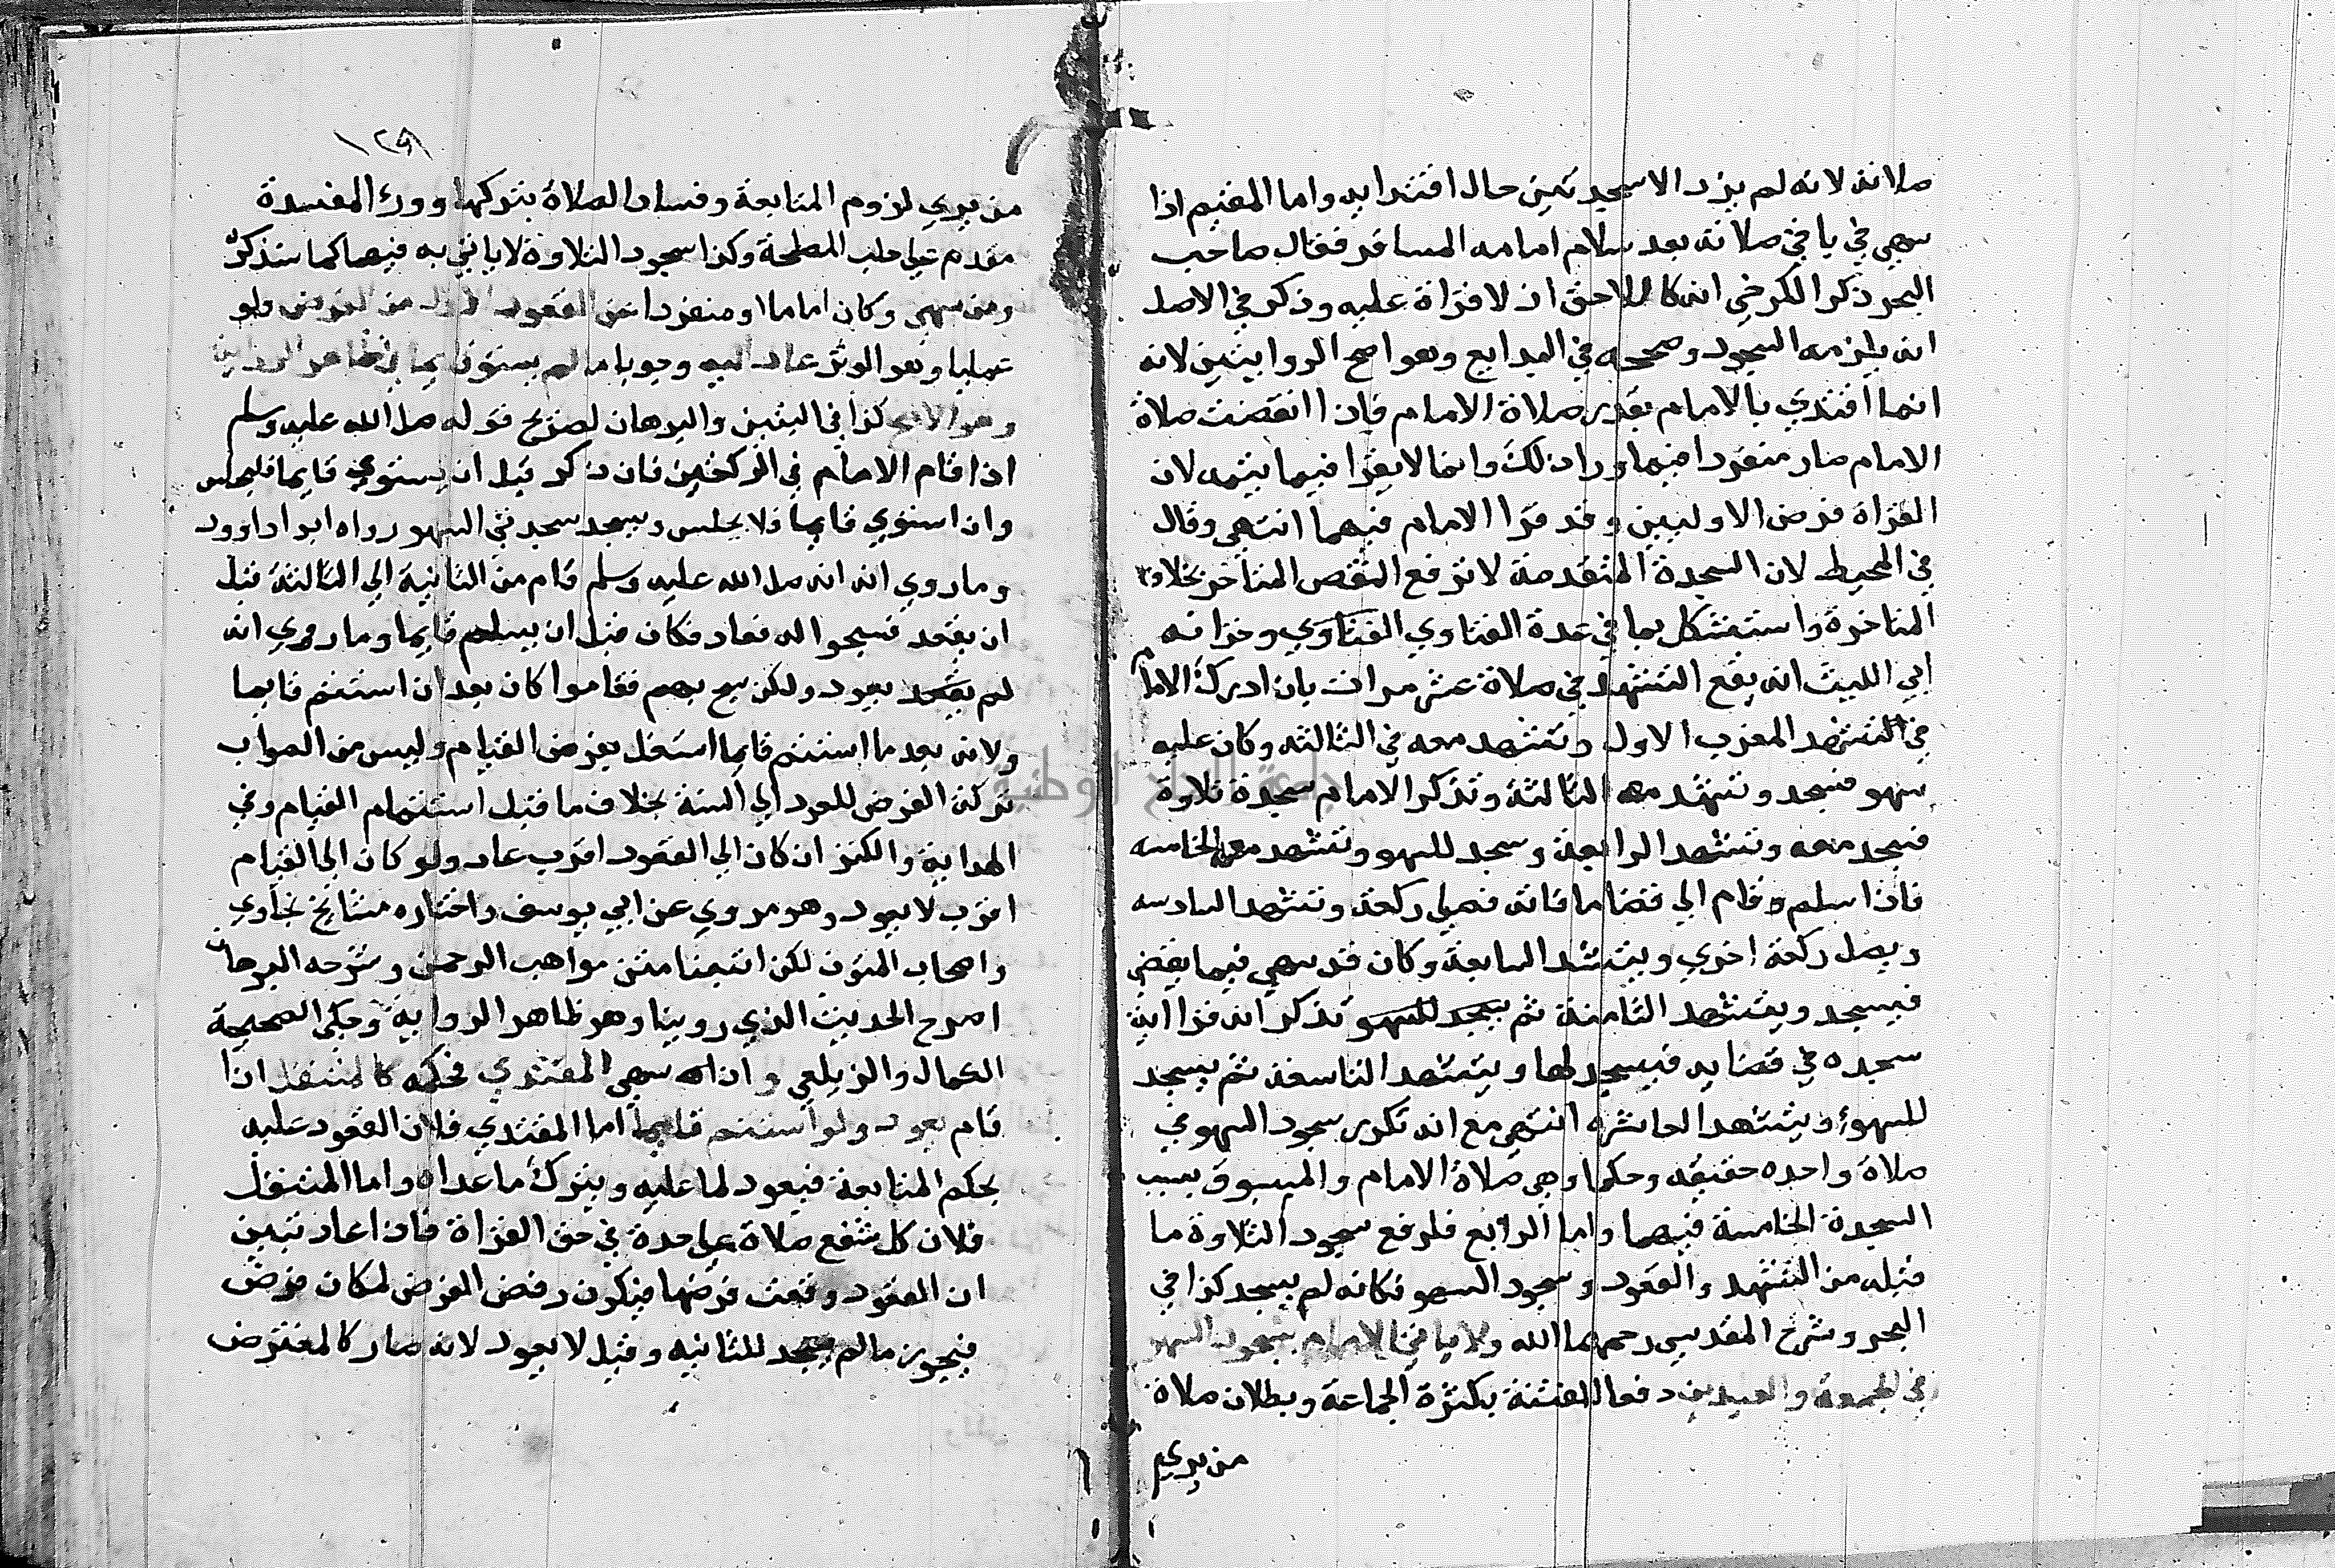 صلاته لانه لم يزد الا سجدتين حال اقتدايه واما المقيم اذا
سهي في باقي صلاته بعد سلام امامه المسافر فقال صاحب
البحر ذكر الكرخي انه كاللاحق اذ لا قراة عليه وذكر في الاصل
انه يلزمه السجود وصححه في البدايع وهو اصح الروايتين لانه
انما اقتدي بالامام بقدر صلاة الامام فاذا انقضت صلاة
الامام صار منفردا فيما وراء ذلك وانما لا يقرا فيما يتمه لان
القراة فرض الاوليين وقد قرا الامام فيهما انتهي وقال
في المحيط لان السجدة المتقدمة لا ترفع النقص المتاخر بخلاف
المتاخرة واستشكل بما في عدة الفتاوي الفتاوي وخزانه
ابي الليث انه يقع التشهد في صلاة عشر مرات بان ادرك الامام
في التشهد المغرب الاول وتشهد معه في الثالثه وكان عليه
سهو فسجد وتشهد معه الثالثة وتذكر الامام سجدة تلاوة
فسجد معه وتشهد الرابعة وسجد للسهو وتشهد معه الخامسه
فاذا سلم وقام الي قضا ما فاته فصلي ركعة وتشهد السادسه
ويصل ركعة اخري ويتشهد السابعة وكان قد سهي فيما يقضي
فيسجد ويتشهد الثامنة ثم يسجد للسهو تذكر انه قرا اية
سجده في قضايه فيسجد لها ويتشهد التاسعة ثم يسجد
للسهو ويتشهد العاشره انتهي مع انه تكرر سجود السهو في
صلاة واحده حقيقه وحكما وهي صلاة الامام والمسبوق بسبب
السجدة الخامسة فيهما واما الرابع فلرفع سجود التلاوة ما
قبله من التشهد والقعود وسجود السهو فكانه لم يسجد كذا في
البحر وشرح المقدسي رحمهما الله ولا ياتي الامام بسجود السهو
في الجمعه والعيدين دفعا للفتنة بكثرة الجماعة وبطلان صلاة
من يري
١٢٩
من يري لزوم المتابعة وفساد الصلاة بتركها ودرء المفسدة
مقدم علي جلب المصلحة وكذا سجود التلاوة لا ياتي به فيهما كما سنذكر
ومن سهي وكان اماما او منفردا عن القعود الاول من الفرض ولو
عمليا وهو الوتر عاد اليه وجوبا ما لم يستو قايما في ظاهر الرواية
وهو الاصح كذا في التبيين والبرهان لصريح قوله صلى الله عليه وسلم
اذا قام الامام في الركعتين فان ذكر قبل ان يستوي قايما فليجلس
وان استوي قايما فلا يجلس ويسجد سجدتي السهو رواه ابو داوود
وما روي انه انه صلى الله عليه وسلم قام من الثانية الي الثالثة قبل
ان يقعد فسبحوا له فعاد فكان قبل ان يسلم قايما وما روي انه
لم يقعد يعود ولكن سبح بهم فقاموا كان بعد ان استتم قايما
ولانه بعد ما استتم قايما اشتغل بفرض القيام وليس من الصواب
ترك الفرض للعود الي السنة بخلاف ما قبل استتمام القيام وفي
الهداية والكنز ان كان الي القعود اقرب عاد ولو كان الي القيام
اقرب لا يعود وهو مروي عن ابي يوسف واختاره مشايخ بخاري
واصحاب المتون لكن اتبعنا متن مواهب الرحمن وشرحه البرهان
اصرح الحديث الذي روينا وهو ظاهر الرواية وحكي الصحيحة
الكمال والزيلعي وان سهي المقتدي فحكمه كالمتنفل اذا
قام يعود ولو استتم قايما اما المقتدي فلان القعود عليه
بحكم المتابعة فيعود لما عليه ويترك ما عداه واما المتنفل
فلان كل شفع صلاة علي حدة في حق القراة فاذا عاد تبين
ان القعود وقعت فرضها فيكون رفض الفرض لمكان فرض
فيجوز ما لم يسجد للثانيه وقيل لا يعود لانه صار كالمفترض
جامعة النجاح الوطنية